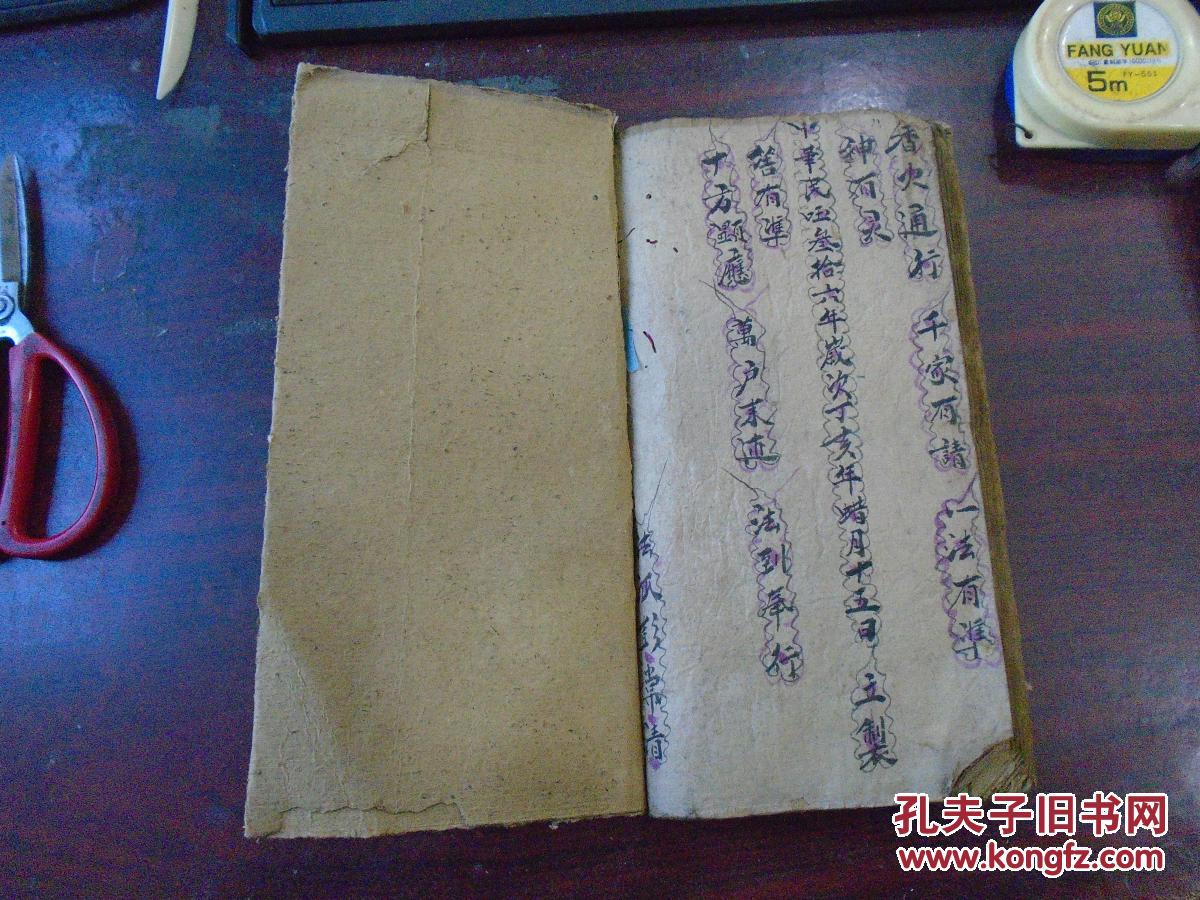 香火通行 千家有請 一法有準
神百灵
中華民国叁拾六年歲次丁亥年蜡月十五日 立製
有準
十方顯應 萬户来迎 法到奉行
FANG YUAN
5m
FY-551
孔夫子旧书网
www.kongfz.com